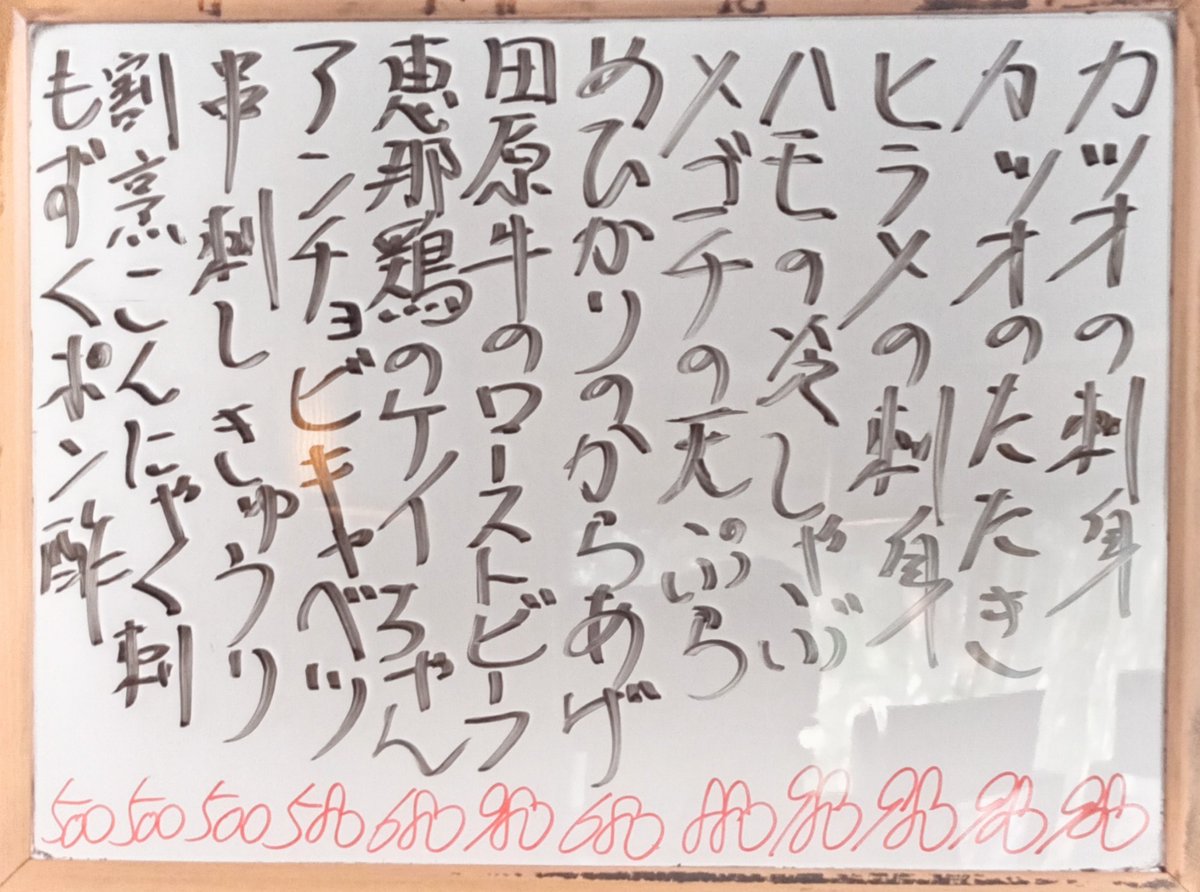 カツオの刺身 980
カツオのたたき 980
ヒラメの刺身 980
ハモの冷しゃぶ 980
メゴチの天ぷら 880
めひかりのからあげ 680
田原牛のローストビーフ 980
恵那鶏のケイちゃん 680
アンチョビキャベツ 580
串刺しきゅうり 500
割烹こんにゃく刺 500
もずくポン酢 500